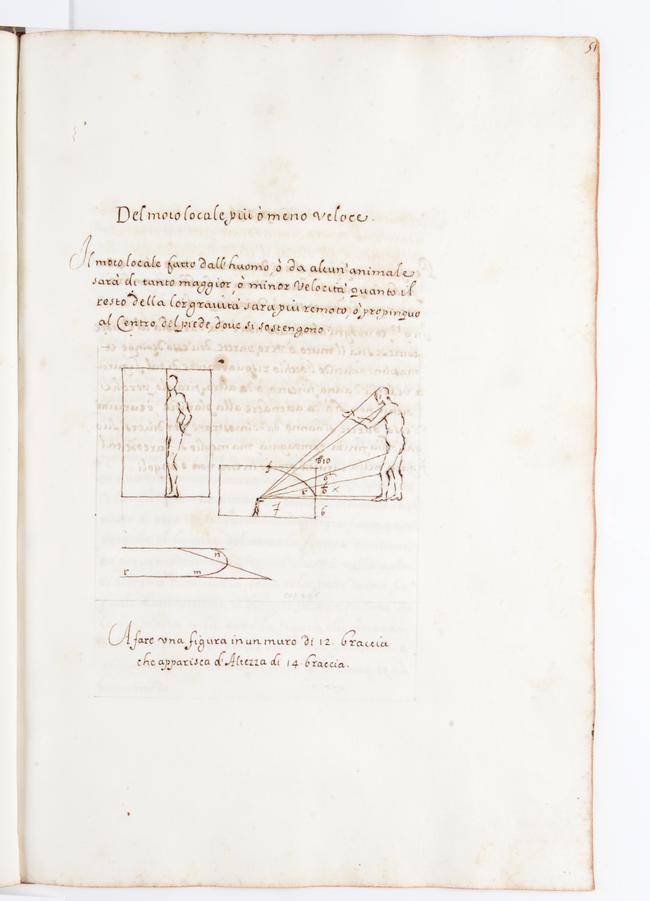 51
Del moto locale più ò meno veloce.
Il moto locale fatto dall'huomo, ò da alcun'animale
sarà di tanto maggior, ò minor velocità quanto il
resto della lor gravità sarà più remoto, ò propinquo
al Centro del piede dove si sostengono.
10
x
f
6
n
r m
A fare una figura in un muro di 12. braccia
che apparisca d'Altezza di 14 braccia.